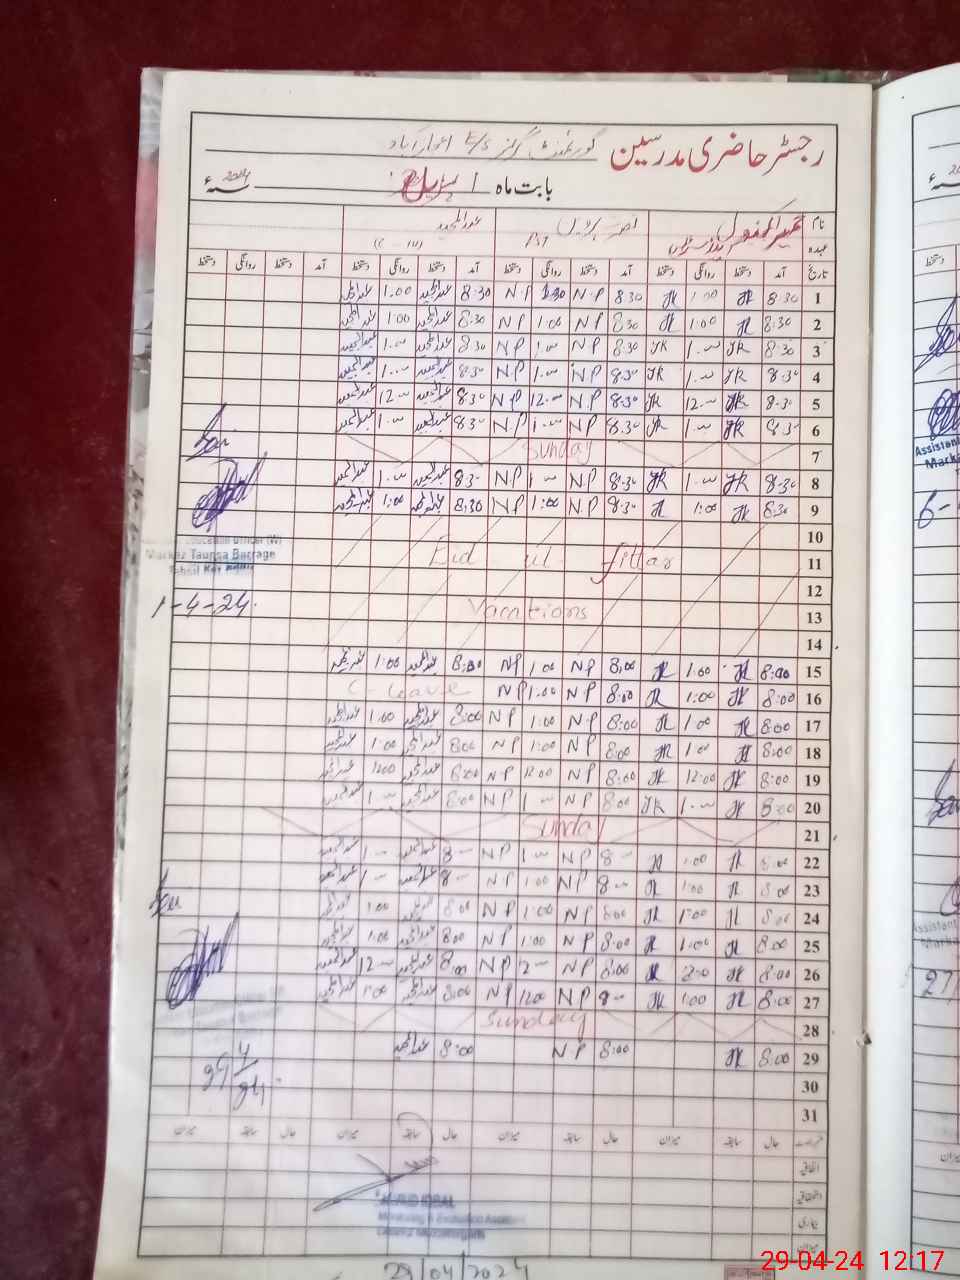 رجسٹر حاضری مدرسین گورنمنٹ گرلز E/S
بابت ماہ اپریل 2024ء
نام عبدالمجید
عہدہ PST
تاریخ آمد دستخط روانگی دستخط آمد دستخط روانگی دستخط آمد دستخط روانگی دستخط آمد دستخط روانگی دستخط
1 8:30 JK 1:00 JK 8:30 N.P 1:30 N.P 8:30 عبدالمجید 1:00 عبدالمجید
2 8:30 JK 1:00 JK 8:30 NP 1:00 NP 8:30 عبدالمجید 1:00 عبدالمجید
3 8:30 JK 1:00 JK 8:30 NP 1:00 NP 8:30 عبدالمجید 1:00 عبدالمجید
4 8:30 JK 1:00 JK 8:30 N.P 1:00 N.P 8:30 عبدالمجید 1:00 عبدالمجید
5 8:30 JK 12:00 JK 8:30 NP 12:00 NP 8:30 عبدالمجید 12:00 عبدالمجید
6 8:30 JK 1:00 JK 8:30 NP 1:00 NP 8:30 عبدالمجید 1:00 عبدالمجید
7 Sunday
8 8:30 JK 1:00 JK 8:30 NP 1:00 NP 8:30 عبدالمجید 1:00 عبدالمجید
9 8:30 JK 1:00 JK 8:30 NP 1:00 NP 8:30 عبدالمجید 1:00 عبدالمجید
10
11 Eid - ul - fittar
Education Officer (W)
Markaz Taunsa Barrage
Tehsil Kot Addu
12
13 Vacations
1-4-24
14
15 8:00 JK 1:00 JK 8:00 NP 1:00 NP 8:00 عبدالمجید 1:00 عبدالمجید
16 8:00 JK 1:00 JK 8:00 NP 1:00 NP C-Leave
17 8:00 JK 1:00 JK 8:00 NP 1:00 NP 8:00 عبدالمجید 1:00 عبدالمجید
18 8:00 JK 1:00 JK 8:00 NP 1:00 NP 8:00 عبدالمجید 1:00 عبدالمجید
19 8:00 JK 12:00 JK 8:00 NP 12:00 N.P 8:00 عبدالمجید 1200 عبدالمجید
20 8:00 JK 1:00 JK 8:00 NP 1:00 NP 8:00 عبدالمجید 1:00 عبدالمجید
21 Sunday
22 8:00 JK 1:00 JK 8:00 NP 1:00 NP 8:00 عبدالمجید 1:00 عبدالمجید
23 8:00 JK 1:00 JK 8:00 NP 1:00 NP 8:00 عبدالمجید 1:00 عبدالمجید
24 8:00 JK 1:00 JK 8:00 NP 1:00 NP 8:00 عبدالمجید 1:00 عبدالمجید
25 8:00 JK 1:00 JK 8:00 NP 1:00 NP 8:00 عبدالمجید 1:00 عبدالمجید
26 8:00 JK JK 8:00 NP NP 8:00 عبدالمجید 12:00 عبدالمجید
27 8:00 JK 1:00 JK 8:00 NP 1200 NP 8:00 عبدالمجید 1:00 عبدالمجید
28 Sunday
29 8:00 JK 8:00 NP 8:00 عبدالمجید
30
31
حال سابقہ میزان حال سابقہ میزان حال سابقہ میزان حال سابقہ میزان
اتفاقیہ
استحقاقیہ
بیماری
میزان
IQBAL
Monitoring & Evaluation Assistant
29/04/2024
Assistant
Marka
29-04-24 12:17